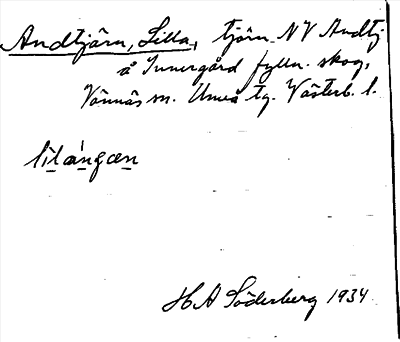 Andtjärn, Lilla, tjärn NV Andtj
å Innergård fylln. skog,
Vännäs sn. Umeå tg. Västerb. l.
lilángæn
H A Söderberg 1934.